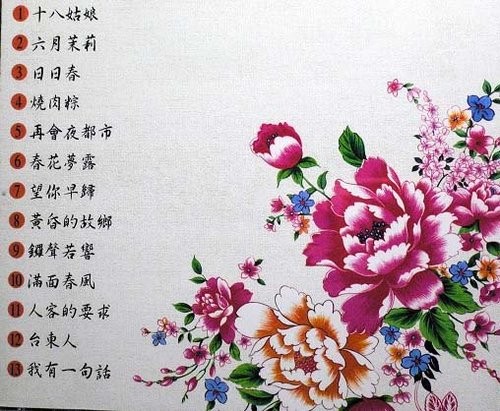 1 十八姑娘
2 六月茉莉
3 日日春
4 燒肉粽
5 再會夜都市
6 春花夢露
7 望你早歸
8 黃昏的故鄉
9 鑼聲若響
10 滿面春風
11 人客的要求
12 台東人
13 我有一句話